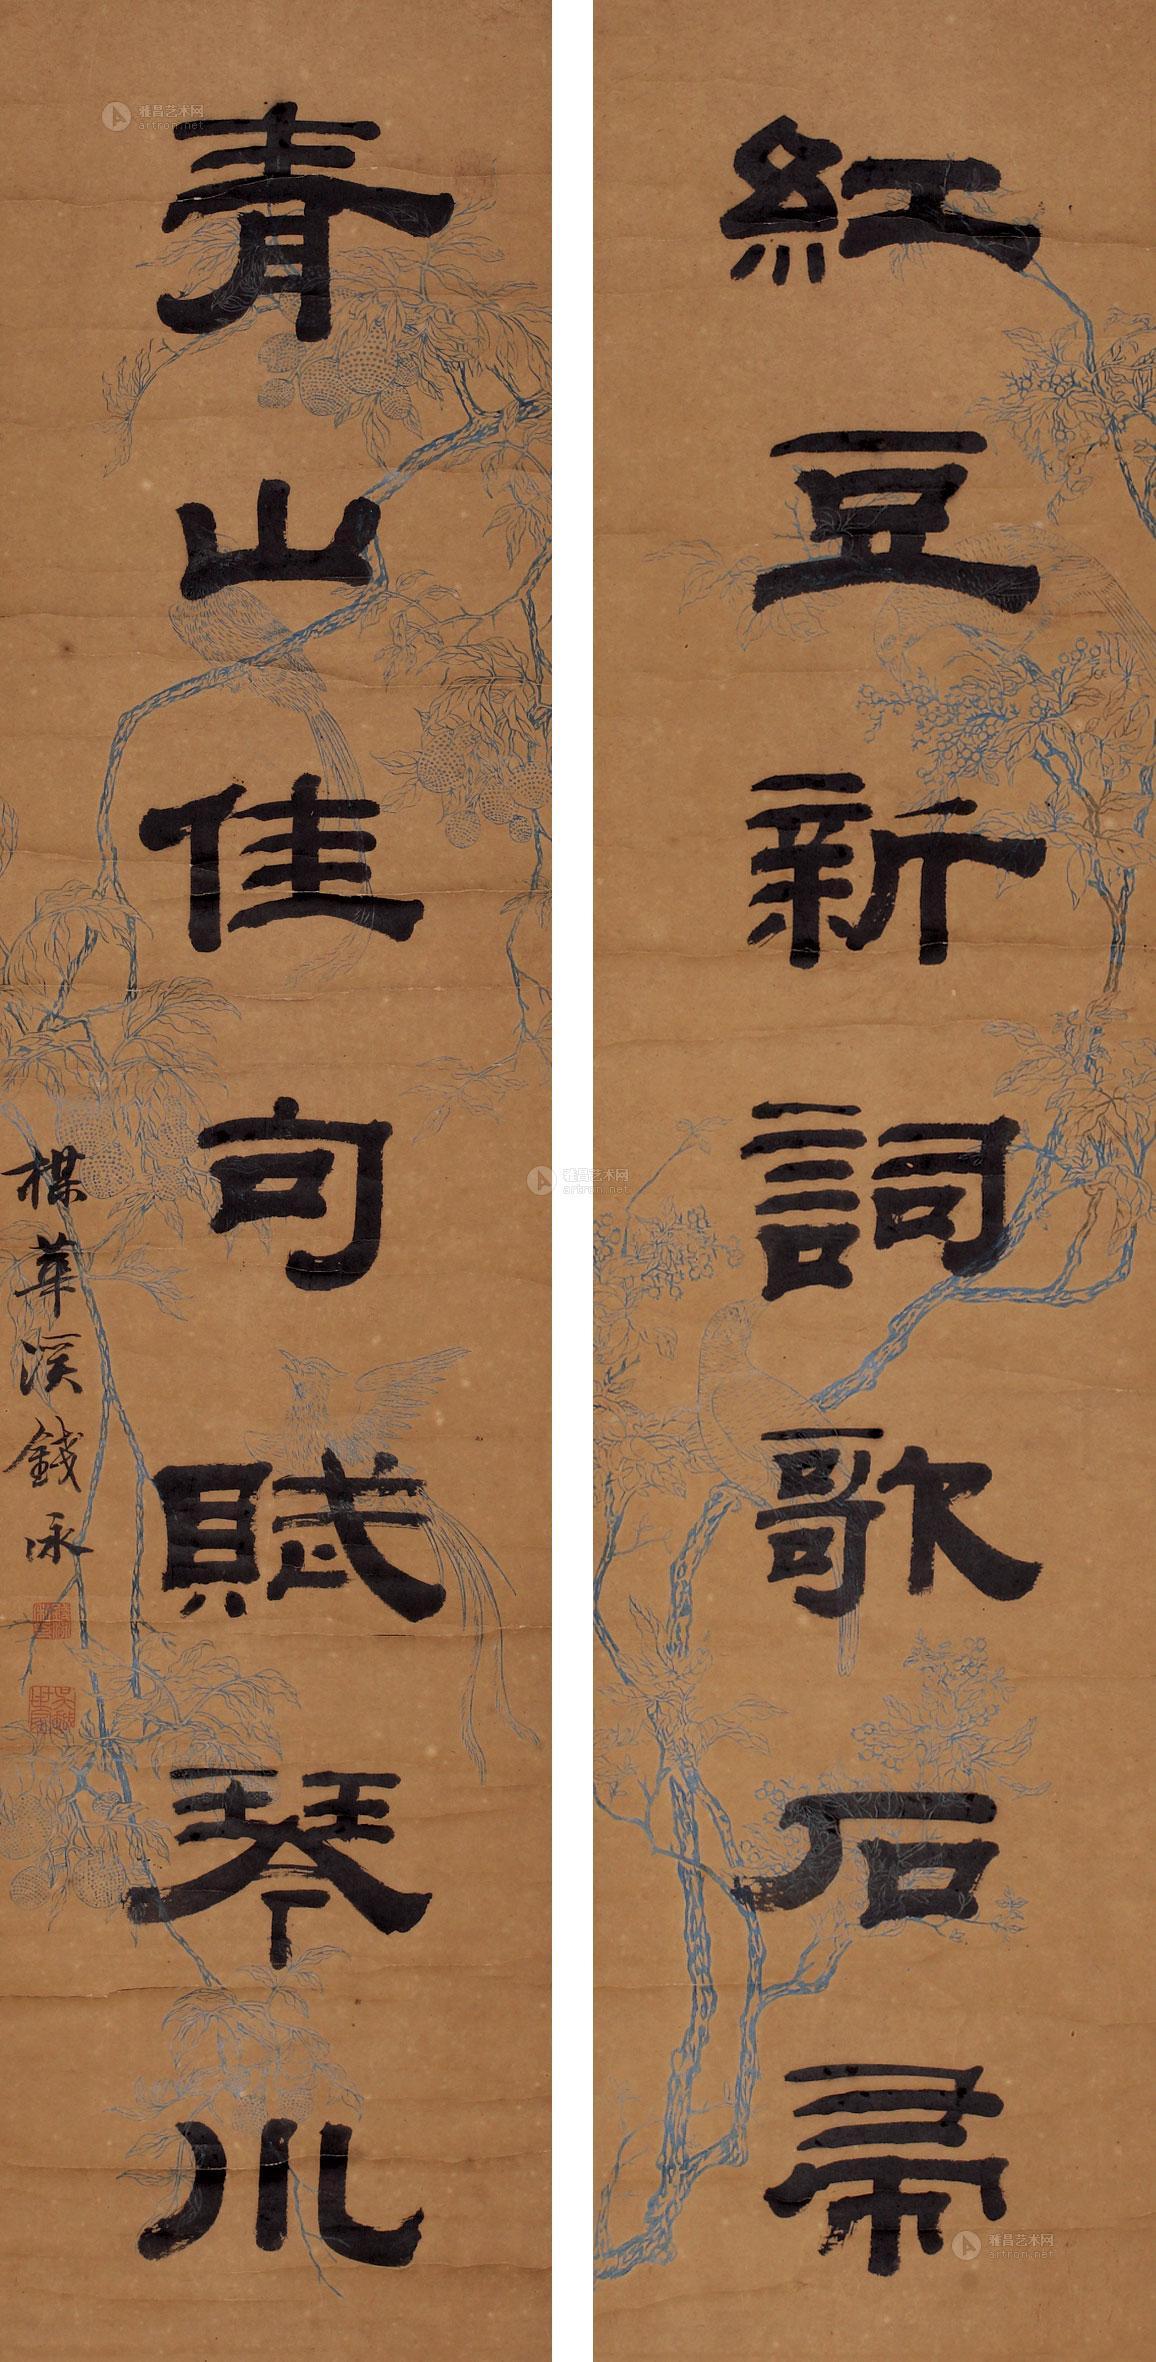 紅豆新詞歌石帚
青山佳句賦琴川
楳華溪錢泳
雅昌艺术网
artron.net
雅昌艺术网
artron.net
雅昌艺术网
artron.net